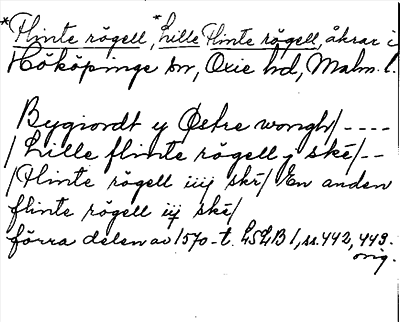 *Flinte rögell, *Lille Flinte rögell, åkrar i
Hököpinge sn, Oxie hd, Malm. l.
Bygiordt y Østre wongh/----
/Lille flinte rögell j ske/--
/Flinte rögell iiij skr/ En anden
flinte rögell iij ske/
förra delen av 1570-t. LSLB 1, ss. 442, 443.
orig.